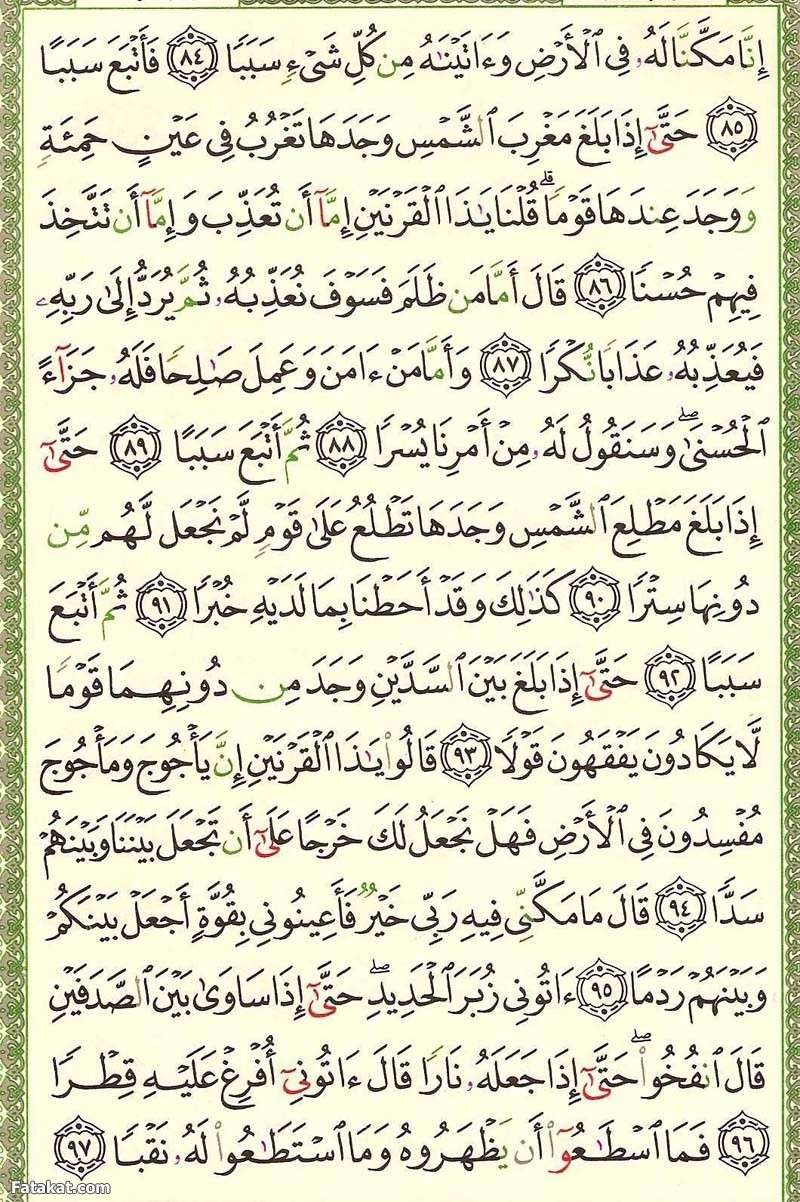 إِنَّا مَكَّنَّا لَهُۥ فِى ٱلْأَرْضِ وَءَاتَيْنَٰهُ مِن كُلِّ شَىْءٍ سَبَبًا ٨٤ فَأَتْبَعَ سَبَبًا
٨٥ حَتَّىٰٓ إِذَا بَلَغَ مَغْرِبَ ٱلشَّمْسِ وَجَدَهَا تَغْرُبُ فِى عَيْنٍ حَمِئَةٍ
وَوَجَدَ عِندَهَا قَوْمًا ۗ قُلْنَا يَٰذَا ٱلْقَرْنَيْنِ إِمَّآ أَن تُعَذِّبَ وَإِمَّآ أَن تَتَّخِذَ
فِيهِمْ حُسْنًا ٨٦ قَالَ أَمَّا مَن ظَلَمَ فَسَوْفَ نُعَذِّبُهُۥ ثُمَّ يُرَدُّ إِلَىٰ رَبِّهِۦ
فَيُعَذِّبُهُۥ عَذَابًا نُّكْرًا ٨٧ وَأَمَّا مَنْ ءَامَنَ وَعَمِلَ صَٰلِحًا فَلَهُۥ جَزَآءً
ٱلْحُسْنَىٰ ۖ وَسَنَقُولُ لَهُۥ مِنْ أَمْرِنَا يُسْرًا ٨٨ ثُمَّ أَتْبَعَ سَبَبًا ٨٩ حَتَّىٰٓ
إِذَا بَلَغَ مَطْلِعَ ٱلشَّمْسِ وَجَدَهَا تَطْلُعُ عَلَىٰ قَوْمٍ لَّمْ نَجْعَل لَّهُم مِّن
دُونِهَا سِتْرًا ٩٠ كَذَٰلِكَ وَقَدْ أَحَطْنَا بِمَا لَدَيْهِ خُبْرًا ٩١ ثُمَّ أَتْبَعَ
سَبَبًا ٩٢ حَتَّىٰٓ إِذَا بَلَغَ بَيْنَ ٱلسَّدَّيْنِ وَجَدَ مِن دُونِهِمَا قَوْمًا
لَّا يَكَادُونَ يَفْقَهُونَ قَوْلًا ٩٣ قَالُوا۟ يَٰذَا ٱلْقَرْنَيْنِ إِنَّ يَأْجُوجَ وَمَأْجُوجَ
مُفْسِدُونَ فِى ٱلْأَرْضِ فَهَلْ نَجْعَلُ لَكَ خَرْجًا عَلَىٰٓ أَن تَجْعَلَ بَيْنَنَا وَبَيْنَهُمْ
سَدًّا ٩٤ قَالَ مَا مَكَّنِّى فِيهِ رَبِّى خَيْرٌ فَأَعِينُونِى بِقُوَّةٍ أَجْعَلْ بَيْنَكُمْ
وَبَيْنَهُمْ رَدْمًا ٩٥ ءَاتُونِى زُبَرَ ٱلْحَدِيدِ ۖ حَتَّىٰٓ إِذَا سَاوَىٰ بَيْنَ ٱلصَّدَفَيْنِ
قَالَ ٱنفُخُوا۟ ۖ حَتَّىٰٓ إِذَا جَعَلَهُۥ نَارًا قَالَ ءَاتُونِىٓ أُفْرِغْ عَلَيْهِ قِطْرًا
٩٦ فَمَا ٱسْطَٰعُوٓا۟ أَن يَظْهَرُوهُ وَمَا ٱسْتَطَٰعُوا۟ لَهُۥ نَقْبًا ٩٧
Fatakat.com